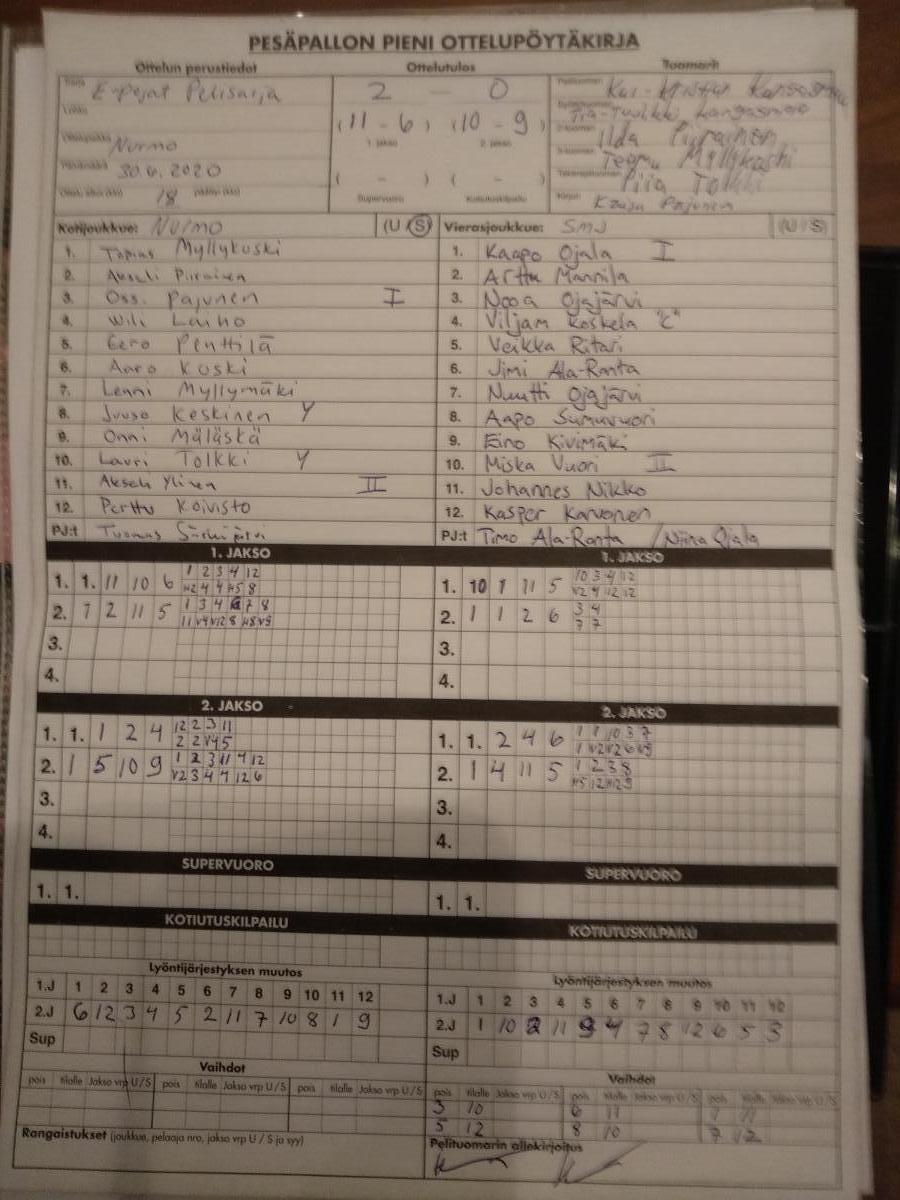 PESÄPALLON PIENI OTTELUPÖYTÄKIRJA
Ottelun perustiedot Ottelutulos Tuomarit
E-pojat Pelisarja 2 - 0
(11 - 6) (10 - 9)
1. jakso 2. jakso
Nurmo Ilda Piirainen
30.6.2020 Teemu Myllykoski
( - ) ( - ) Piia Tolkki
18 Supervuoro Kotiutuskilpailu Pajunen
Kotijoukkue: Nurmo (U / S) Vierasjoukkue: SMJ (U / S)
1. Topias Myllykoski 1. Kaapo Ojala I
2. Piirainen 2. Arttu Mannila
3. Pajunen I 3. Nooa Ojajärvi
4. Wili Laiho 4. Viljam Koskela "C"
5. Eero Penttilä 5. Veikka Ritari
6. Aaro Koski 6. Jimi Ala-Ranta
7. Lenni Myllymäki 7. Nuutti Ojajärvi
8. Juuso Keskinen Y 8. Aapo Sumuvuori
9. Onni Mäläskä 9. Eino Kivimäki
10. Lauri Tolkki Y 10. Miska Vuori II
11. Akseli Ylinen II 11. Johannes Nikko
12. Perttu Koivisto 12. Kasper Karvonen
PJ:t Tuomas PJ:t Timo Ala-Ranta / Niina Ojala
1. JAKSO 1. JAKSO
1. 1. 11 10 6 1 2 3 4 12 1. 10 1 11 5 10 3 4 12
2. 1 2 11 5 1 3 4 6 7 8 2. 1 1 2 6 3 4
7 7
3. 3.
4. 4.
2. JAKSO 2. JAKSO
1. 1. 1 2 4 12 2 3 11 1. 1. 2 4 6 1 1 10 3 7
2 2 V4 5
2. 1 5 10 9 1 2 3 11 4 12 2. 1 4 11 5 1 2 3 8
V2 3 4 4 12 6
3. 3.
4. 4.
SUPERVUORO SUPERVUORO
1. 1. 1. 1.
KOTIUTUSKILPAILU KOTIUTUSKILPAILU
Lyöntijärjestyksen muutos Lyöntijärjestyksen muutos
1.J 1 2 3 4 5 6 7 8 9 10 11 12 1.J 1 2 3 4 5 6 7 8 9 10 11 12
2.J 6 12 3 4 5 2 11 7 10 8 1 9 2.J 1 10 2 11 9 4 7 8 12 6 5 3
Sup Sup
Vaihdot Vaihdot
pois tilalle Jakso vrp U / S pois tilalle Jakso vrp U / S pois tilalle Jakso vrp U / S pois tilalle Jakso vrp U / S pois tilalle Jakso vrp U / S pois tilalle Jakso vrp U / S
3 10 6 11
5 12 8 10 7 12
Rangaistukset (joukkue, pelaaja nro, jakso vrp U / S ja syy) Pelituomarin allekirjoitus